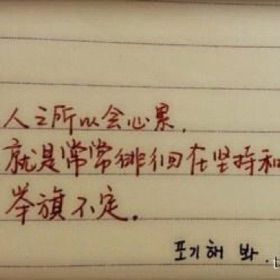 人之所以会心累,
就是常常徘徊在坚持和
举旗不定.
포기해 봐.